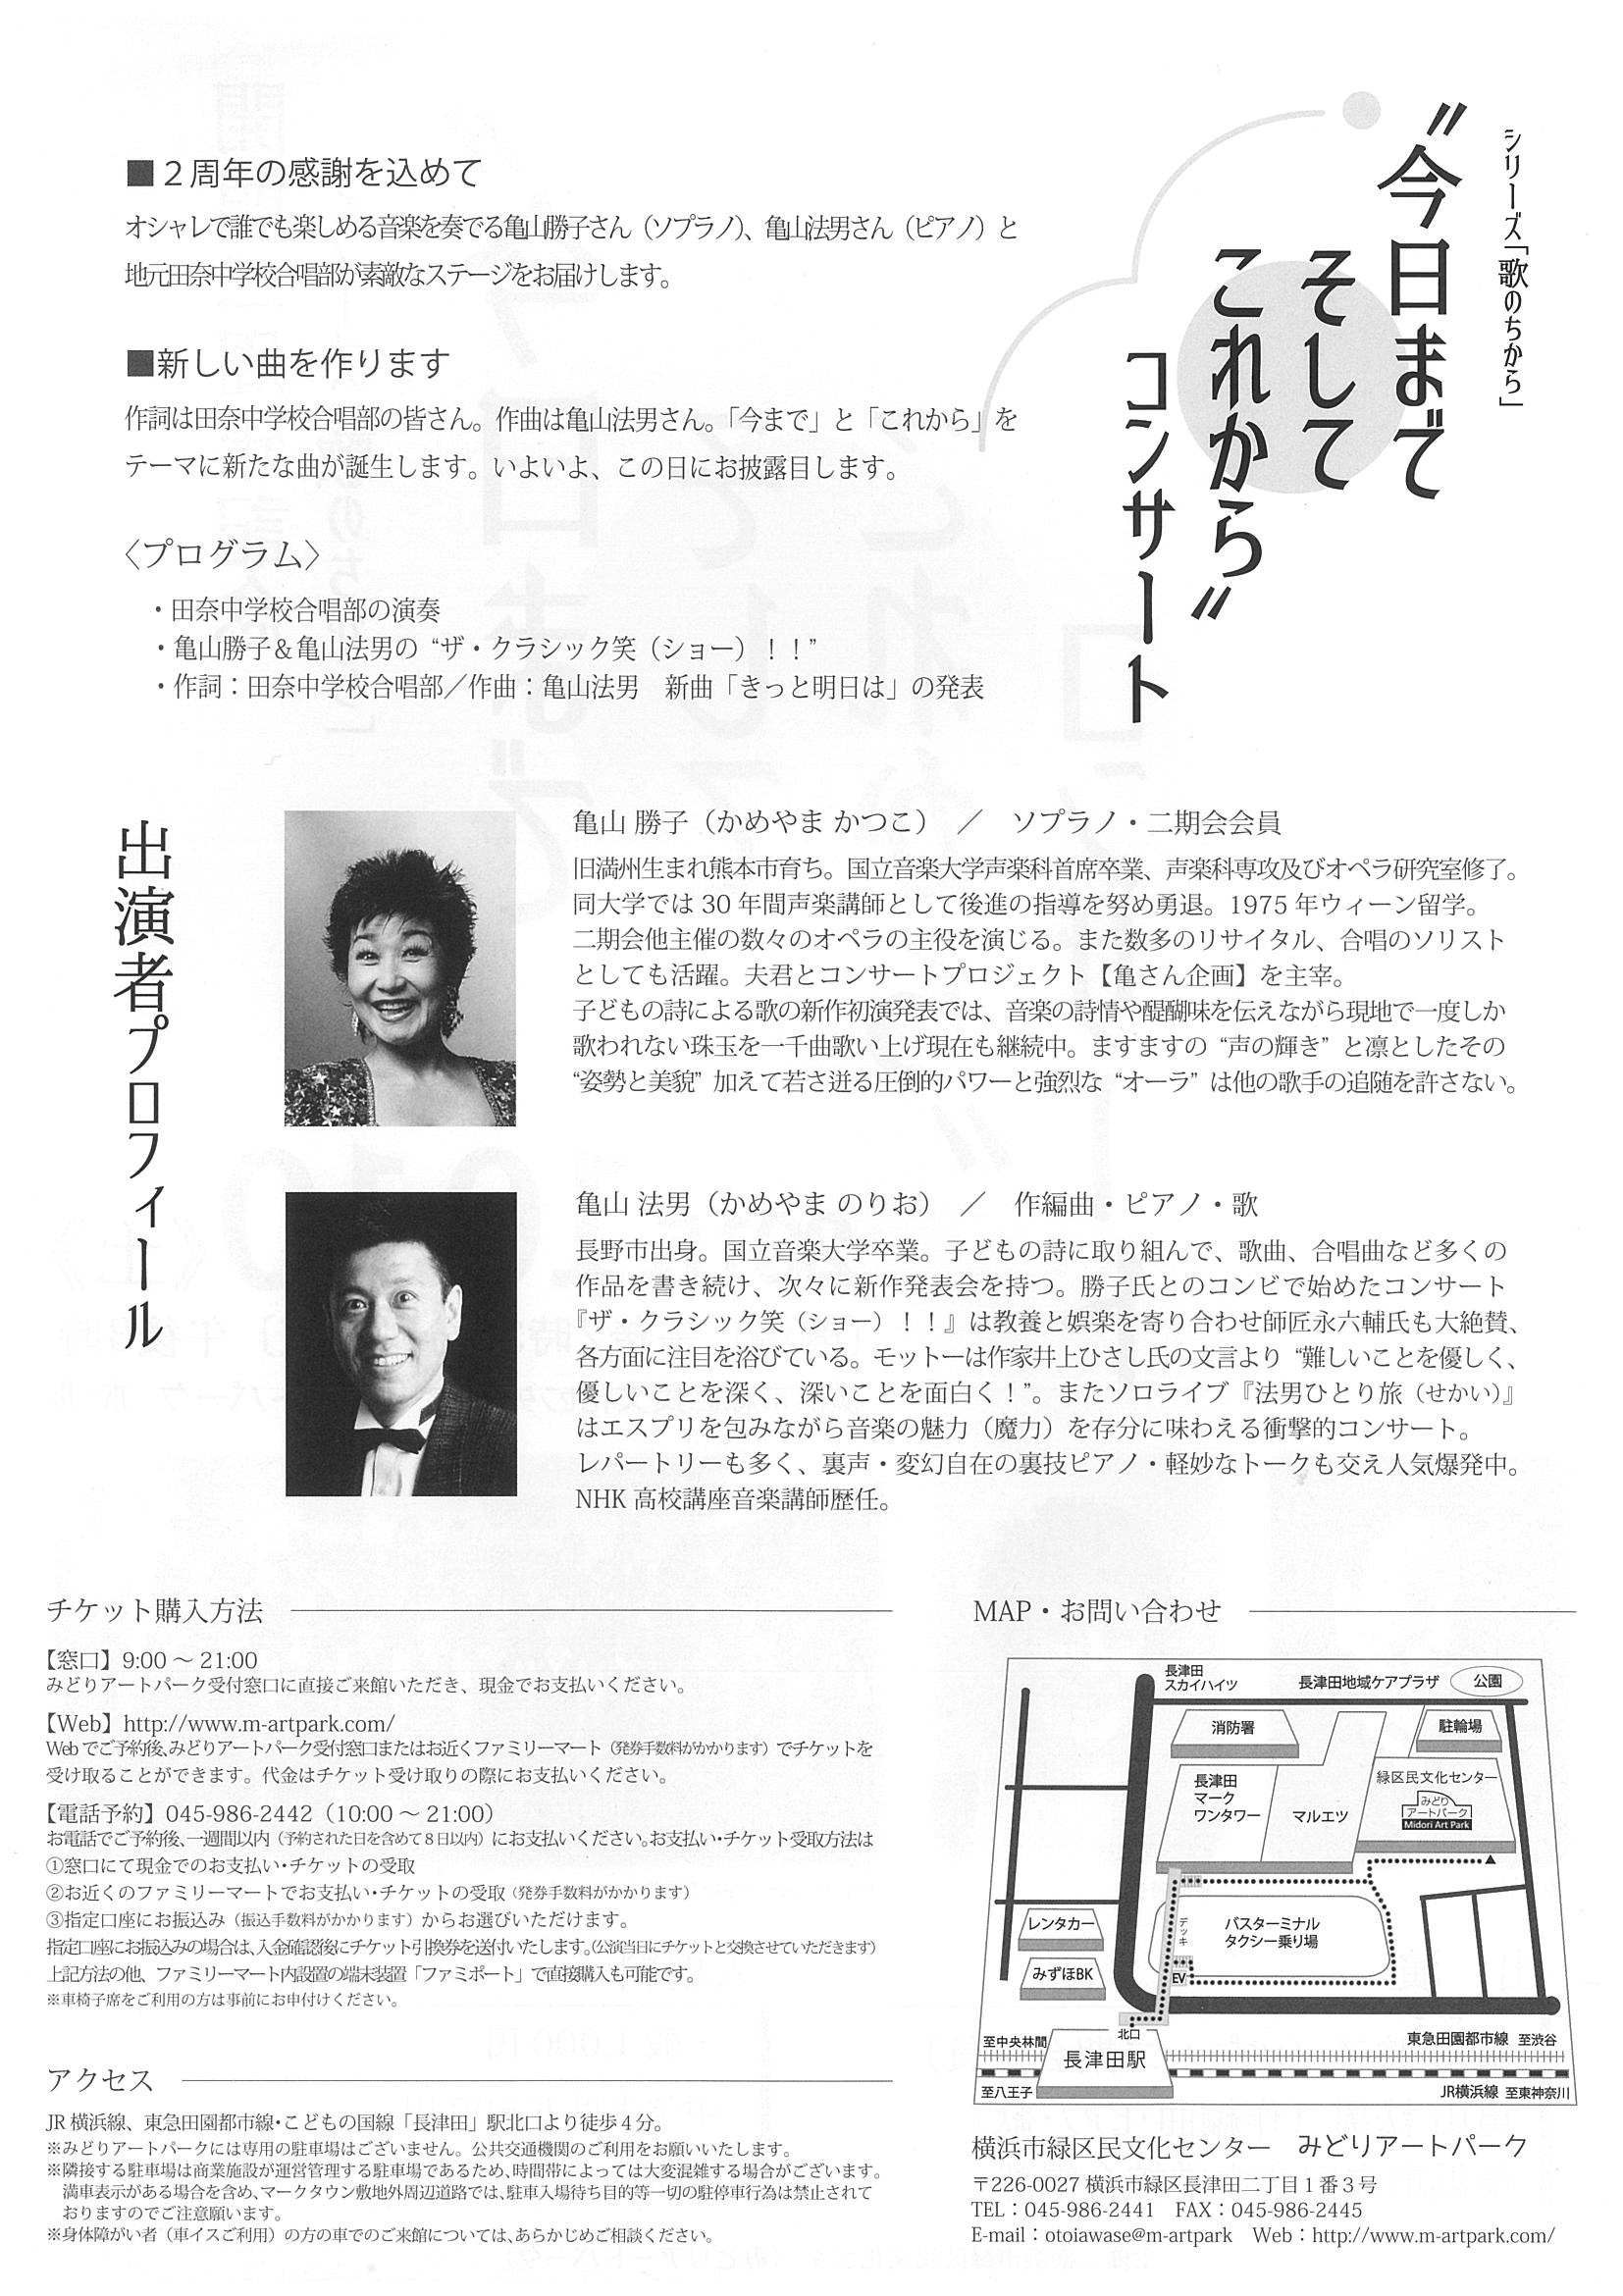 シリーズ「歌のちから」
〝今日まで
そして
これから〟
コンサート
■２周年の感謝を込めて
オシャレで誰でも楽しめる音楽を奏でる亀山勝子さん（ソプラノ）、亀山法男さん（ピアノ）と
地元田奈中学校合唱部が素敵なステージをお届けします。
■新しい曲を作ります
作詞は田奈中学校合唱部の皆さん。作曲は亀山法男さん。「今まで」と「これから」を
テーマに新たな曲が誕生します。いよいよ、この日にお披露目します。
〈プログラム〉
・田奈中学校合唱部の演奏
・亀山勝子＆亀山法男の “ザ・クラシック笑（ショー）！！”
・作詞：田奈中学校合唱部／作曲：亀山法男　新曲「きっと明日は」の発表
出演者プロフィール
亀山 勝子（かめやま かつこ）　／　ソプラノ・二期会会員
旧満州生まれ熊本市育ち。国立音楽大学声楽科首席卒業、声楽科専攻及びオペラ研究室修了。
同大学では 30 年間声楽講師として後進の指導を努め勇退。1975 年ウィーン留学。
二期会他主催の数々のオペラの主役を演じる。また数多のリサイタル、合唱のソリスト
としても活躍。夫君とコンサートプロジェクト【亀さん企画】を主宰。
子どもの詩による歌の新作初演発表では、音楽の詩情や醍醐味を伝えながら現地で一度しか
歌われない珠玉を一千曲歌い上げ現在も継続中。ますますの “声の輝き” と凛としたその
“姿勢と美貌” 加えて若さ迸る圧倒的パワーと強烈な “オーラ” は他の歌手の追随を許さない。
亀山 法男（かめやま のりお）　／　作編曲・ピアノ・歌
長野市出身。国立音楽大学卒業。子どもの詩に取り組んで、歌曲、合唱曲など多くの
作品を書き続け、次々に新作発表会を持つ。勝子氏とのコンビで始めたコンサート
『ザ・クラシック笑（ショー）！！』は教養と娯楽を寄り合わせ師匠永六輔氏も大絶賛、
各方面に注目を浴びている。モットーは作家井上ひさし氏の文言より “難しいことを優しく、
優しいことを深く、深いことを面白く！”。またソロライブ『法男ひとり旅（せかい）』
はエスプリを包みながら音楽の魅力（魔力）を存分に味わえる衝撃的コンサート。
レパートリーも多く、裏声・変幻自在の裏技ピアノ・軽妙なトークも交え人気爆発中。
NHK 高校講座音楽講師歴任。
チケット購入方法
【窓口】9:00 ～ 21:00
みどりアートパーク受付窓口に直接ご来館いただき、現金でお支払いください。
【Web】http://www.m-artpark.com/
Web でご予約後、みどりアートパーク受付窓口またはお近くファミリーマート（発券手数料がかかります）でチケットを
受け取ることができます。代金はチケット受け取りの際にお支払いください。
【電話予約】045-986-2442（10:00 ～ 21:00）
お電話でご予約後、一週間以内（予約された日を含めて８日以内）にお支払いください。お支払い・チケット受取方法は
①窓口にて現金でのお支払い・チケットの受取
②お近くのファミリーマートでお支払い・チケットの受取（発券手数料がかかります）
③指定口座にお振込み（振込手数料がかかります）からお選びいただけます。
指定口座にお振込みの場合は、入金確認後にチケット引換券を送付いたします。（公演当日にチケットと交換させていただきます）
上記方法の他、ファミリーマート内設置の端末装置「ファミポート」で直接購入も可能です。
※車椅子席をご利用の方は事前にお申付けください。
アクセス
JR 横浜線、東急田園都市線・こどもの国線「長津田」駅北口より徒歩４分。
※みどりアートパークには専用の駐車場はございません。公共交通機関のご利用をお願いいたします。
※隣接する駐車場は商業施設が運営管理する駐車場であるため、時間帯によっては大変混雑する場合がございます。
満車表示がある場合を含め、マークタウン敷地外周辺道路では、駐車入場待ち目的等一切の駐停車行為は禁止されて
おりますのでご注意願います。
※身体障がい者（車イスご利用）の方の車でのご来館については、あらかじめご相談ください。
MAP・お問い合わせ
長津田
スカイハイツ
長津田地域ケアプラザ
公園
消防署
駐輪場
長津田
マーク
ワンタワー
マルエツ
緑区民文化センター
みどり
アートパーク
Midori Art Park
レンタカー
みずほBK
デッキ
EV
バスターミナル
タクシー乗り場
北口
至中央林間
長津田駅
東急田園都市線 至渋谷
至八王子
JR横浜線 至東神奈川
横浜市緑区民文化センター　みどりアートパーク
〒226-0027 横浜市緑区長津田二丁目１番３号
TEL：045-986-2441　FAX：045-986-2445
E-mail：otoiawase@m-artpark　Web：http://www.m-artpark.com/